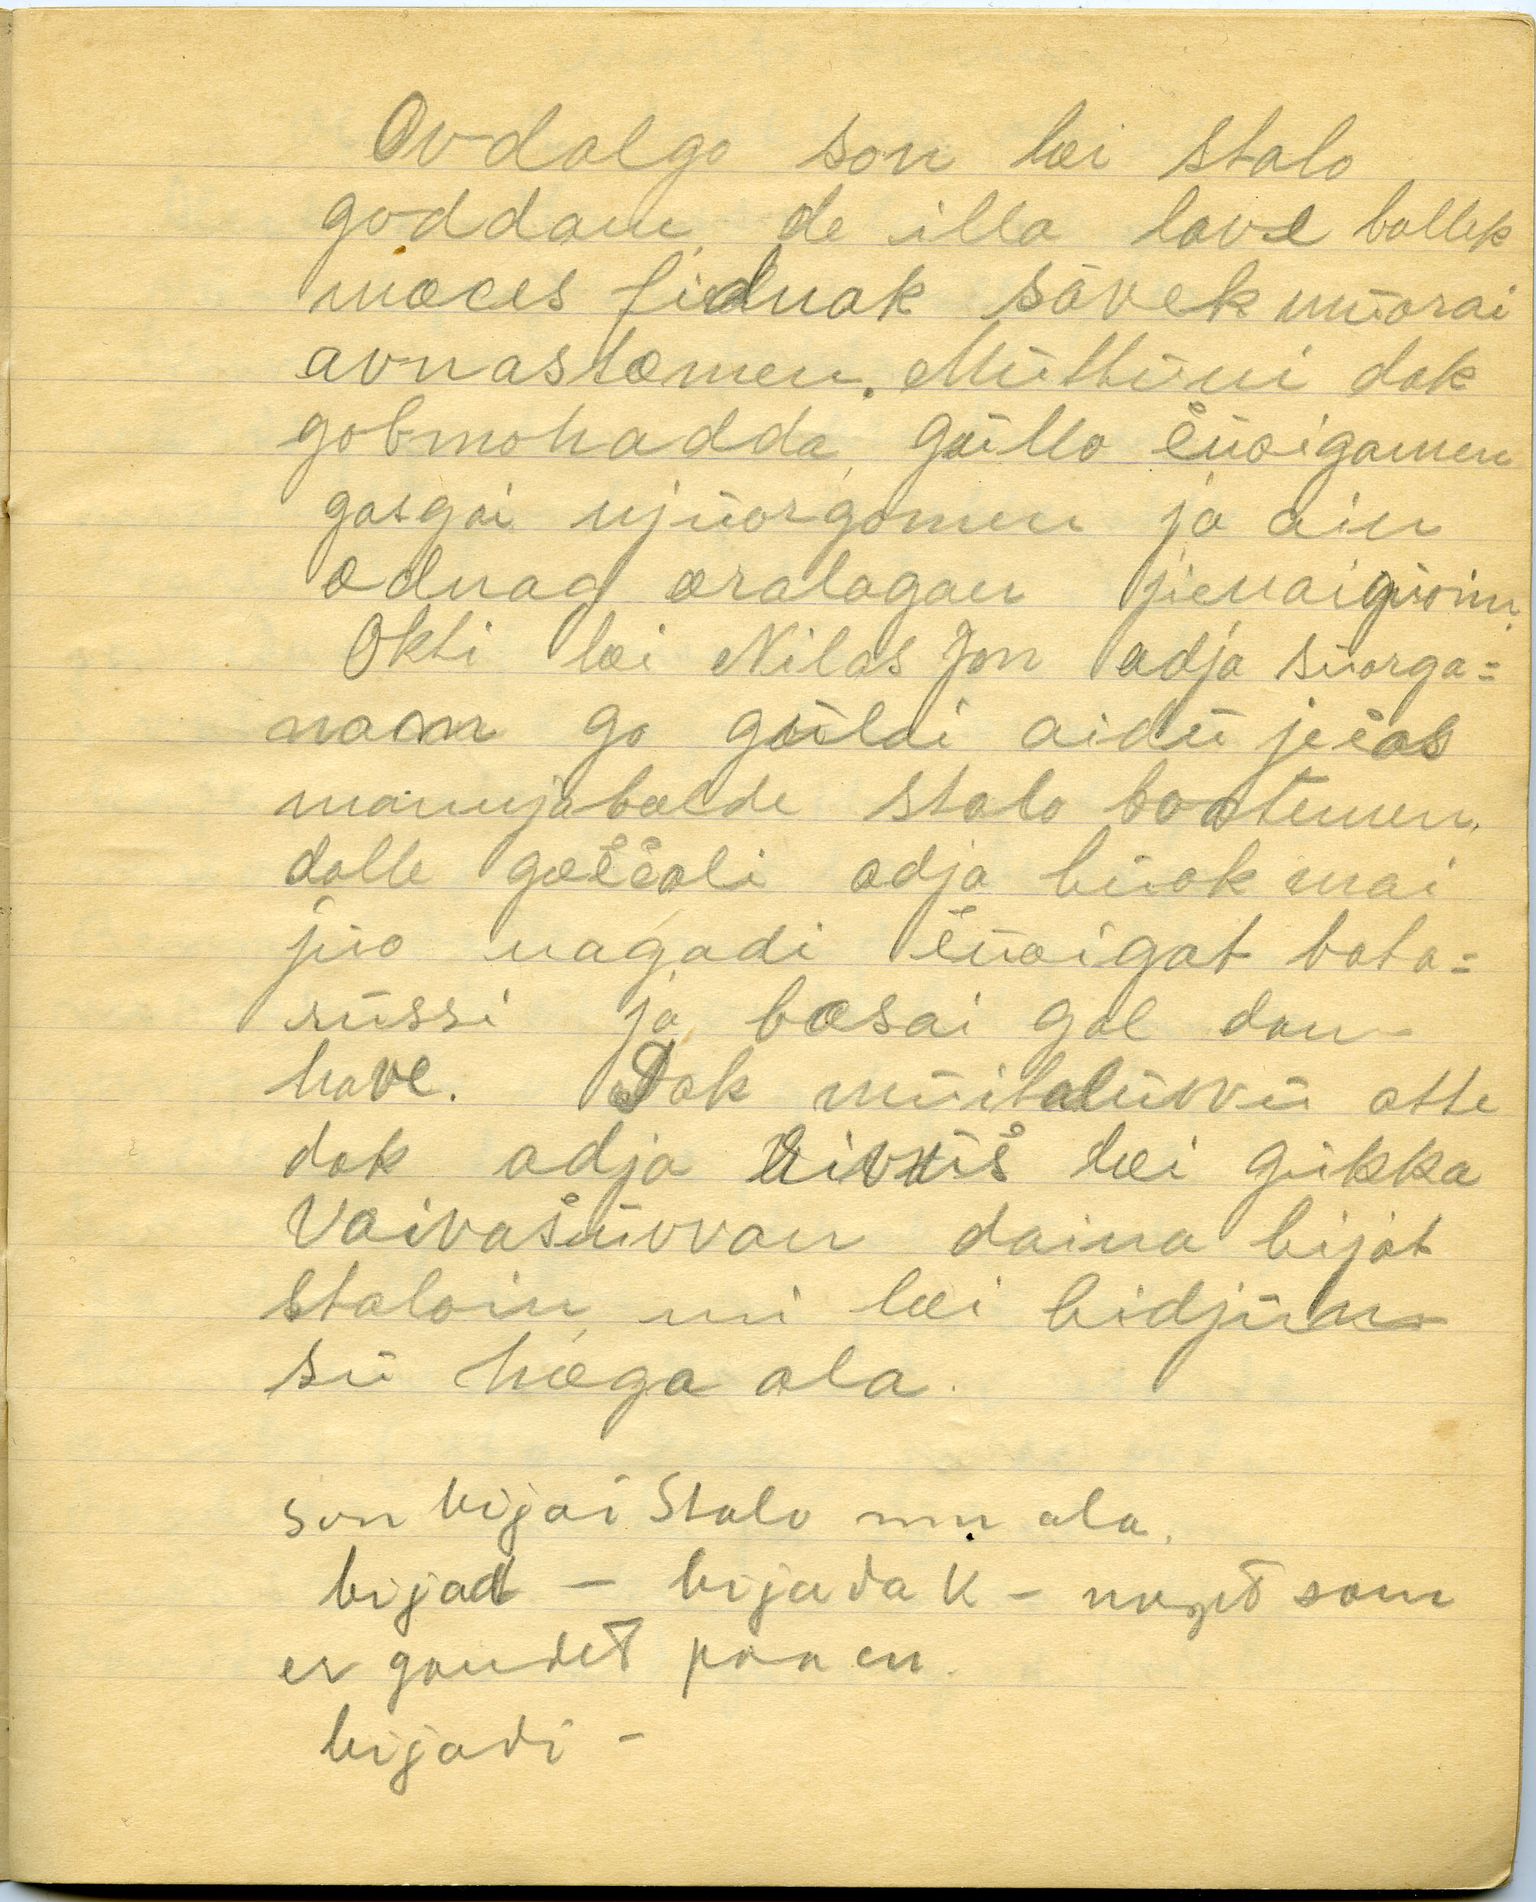 Ovdalgo son læi stalo
goddam, de illa lave ballek
mæces fidnak sävek muorai
avnastæmen. Muttumi dak
gobmohadda, gullo čuoigamen
gasgai njuorgomen ja ain
ædnag æralagan jienaiguoim.
Okti læi Nilas Jon adja suorga=
nam go gulai aidu ječas
mannjabælde stalo boatemen.
dalle gæččali adja buok mai
juo nagadi čuoigat bata=
russi ja bæsai gal dan
have. Dak muitaluvvu atte
dak adja rivus læi gukka
vaivašuvvan daina bijat
staloin, mi læi bidjum
su hæga ala.
son bijai Stalo mu ala.
bijad – bijadak – noget som
er gandet paa en.
bijadi –